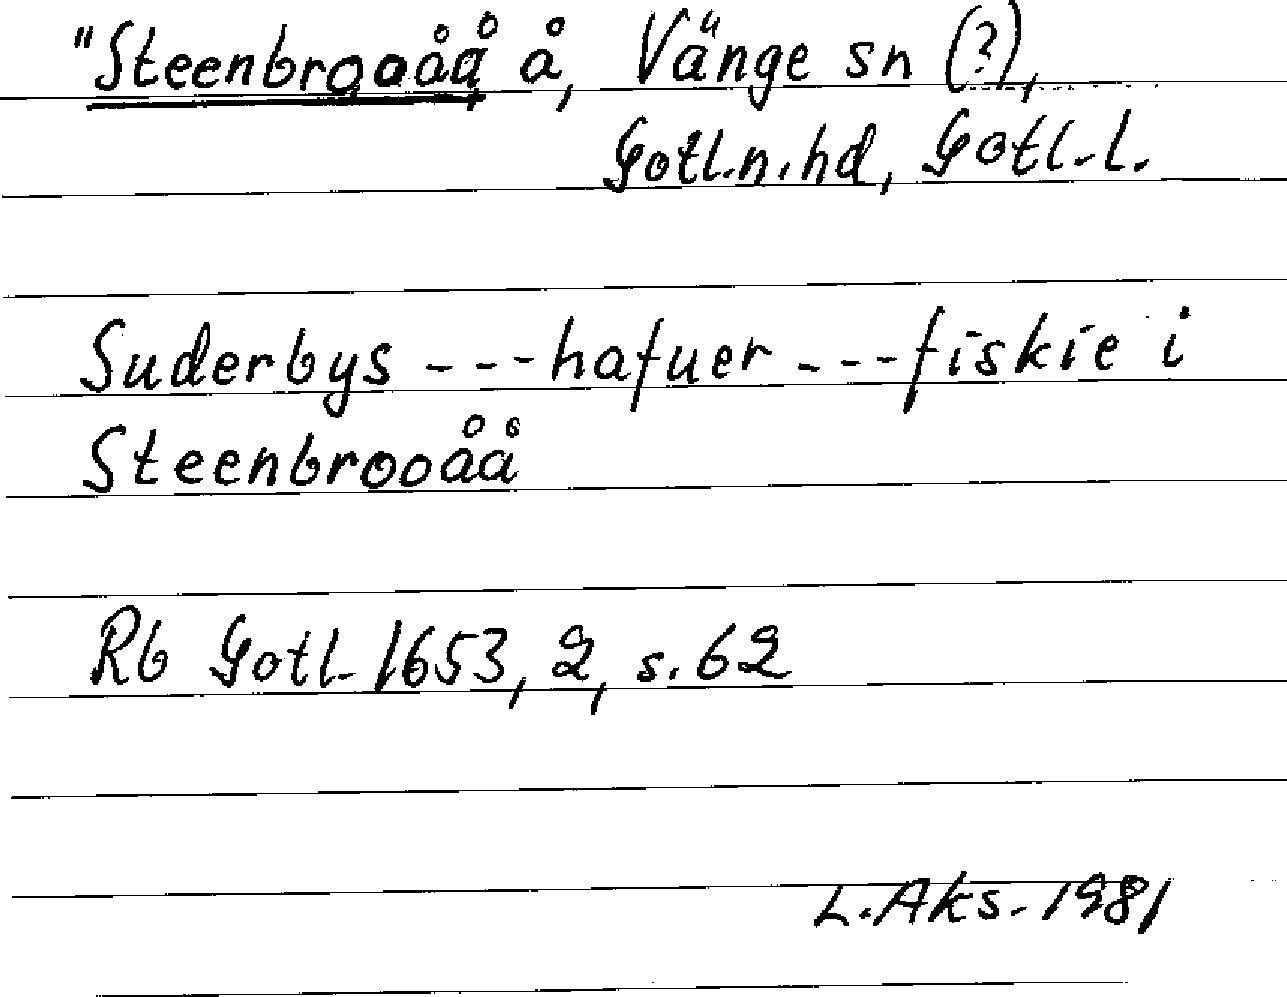 "Steenbrooåå å, Vänge sn (?),
Gotl.n.hd, Gotl.l.
Suderbys ---hafuer ---fiskie i
Steenbrooåå
Rb Gotl. 1653, 2, s. 62
L.Aks. 1981